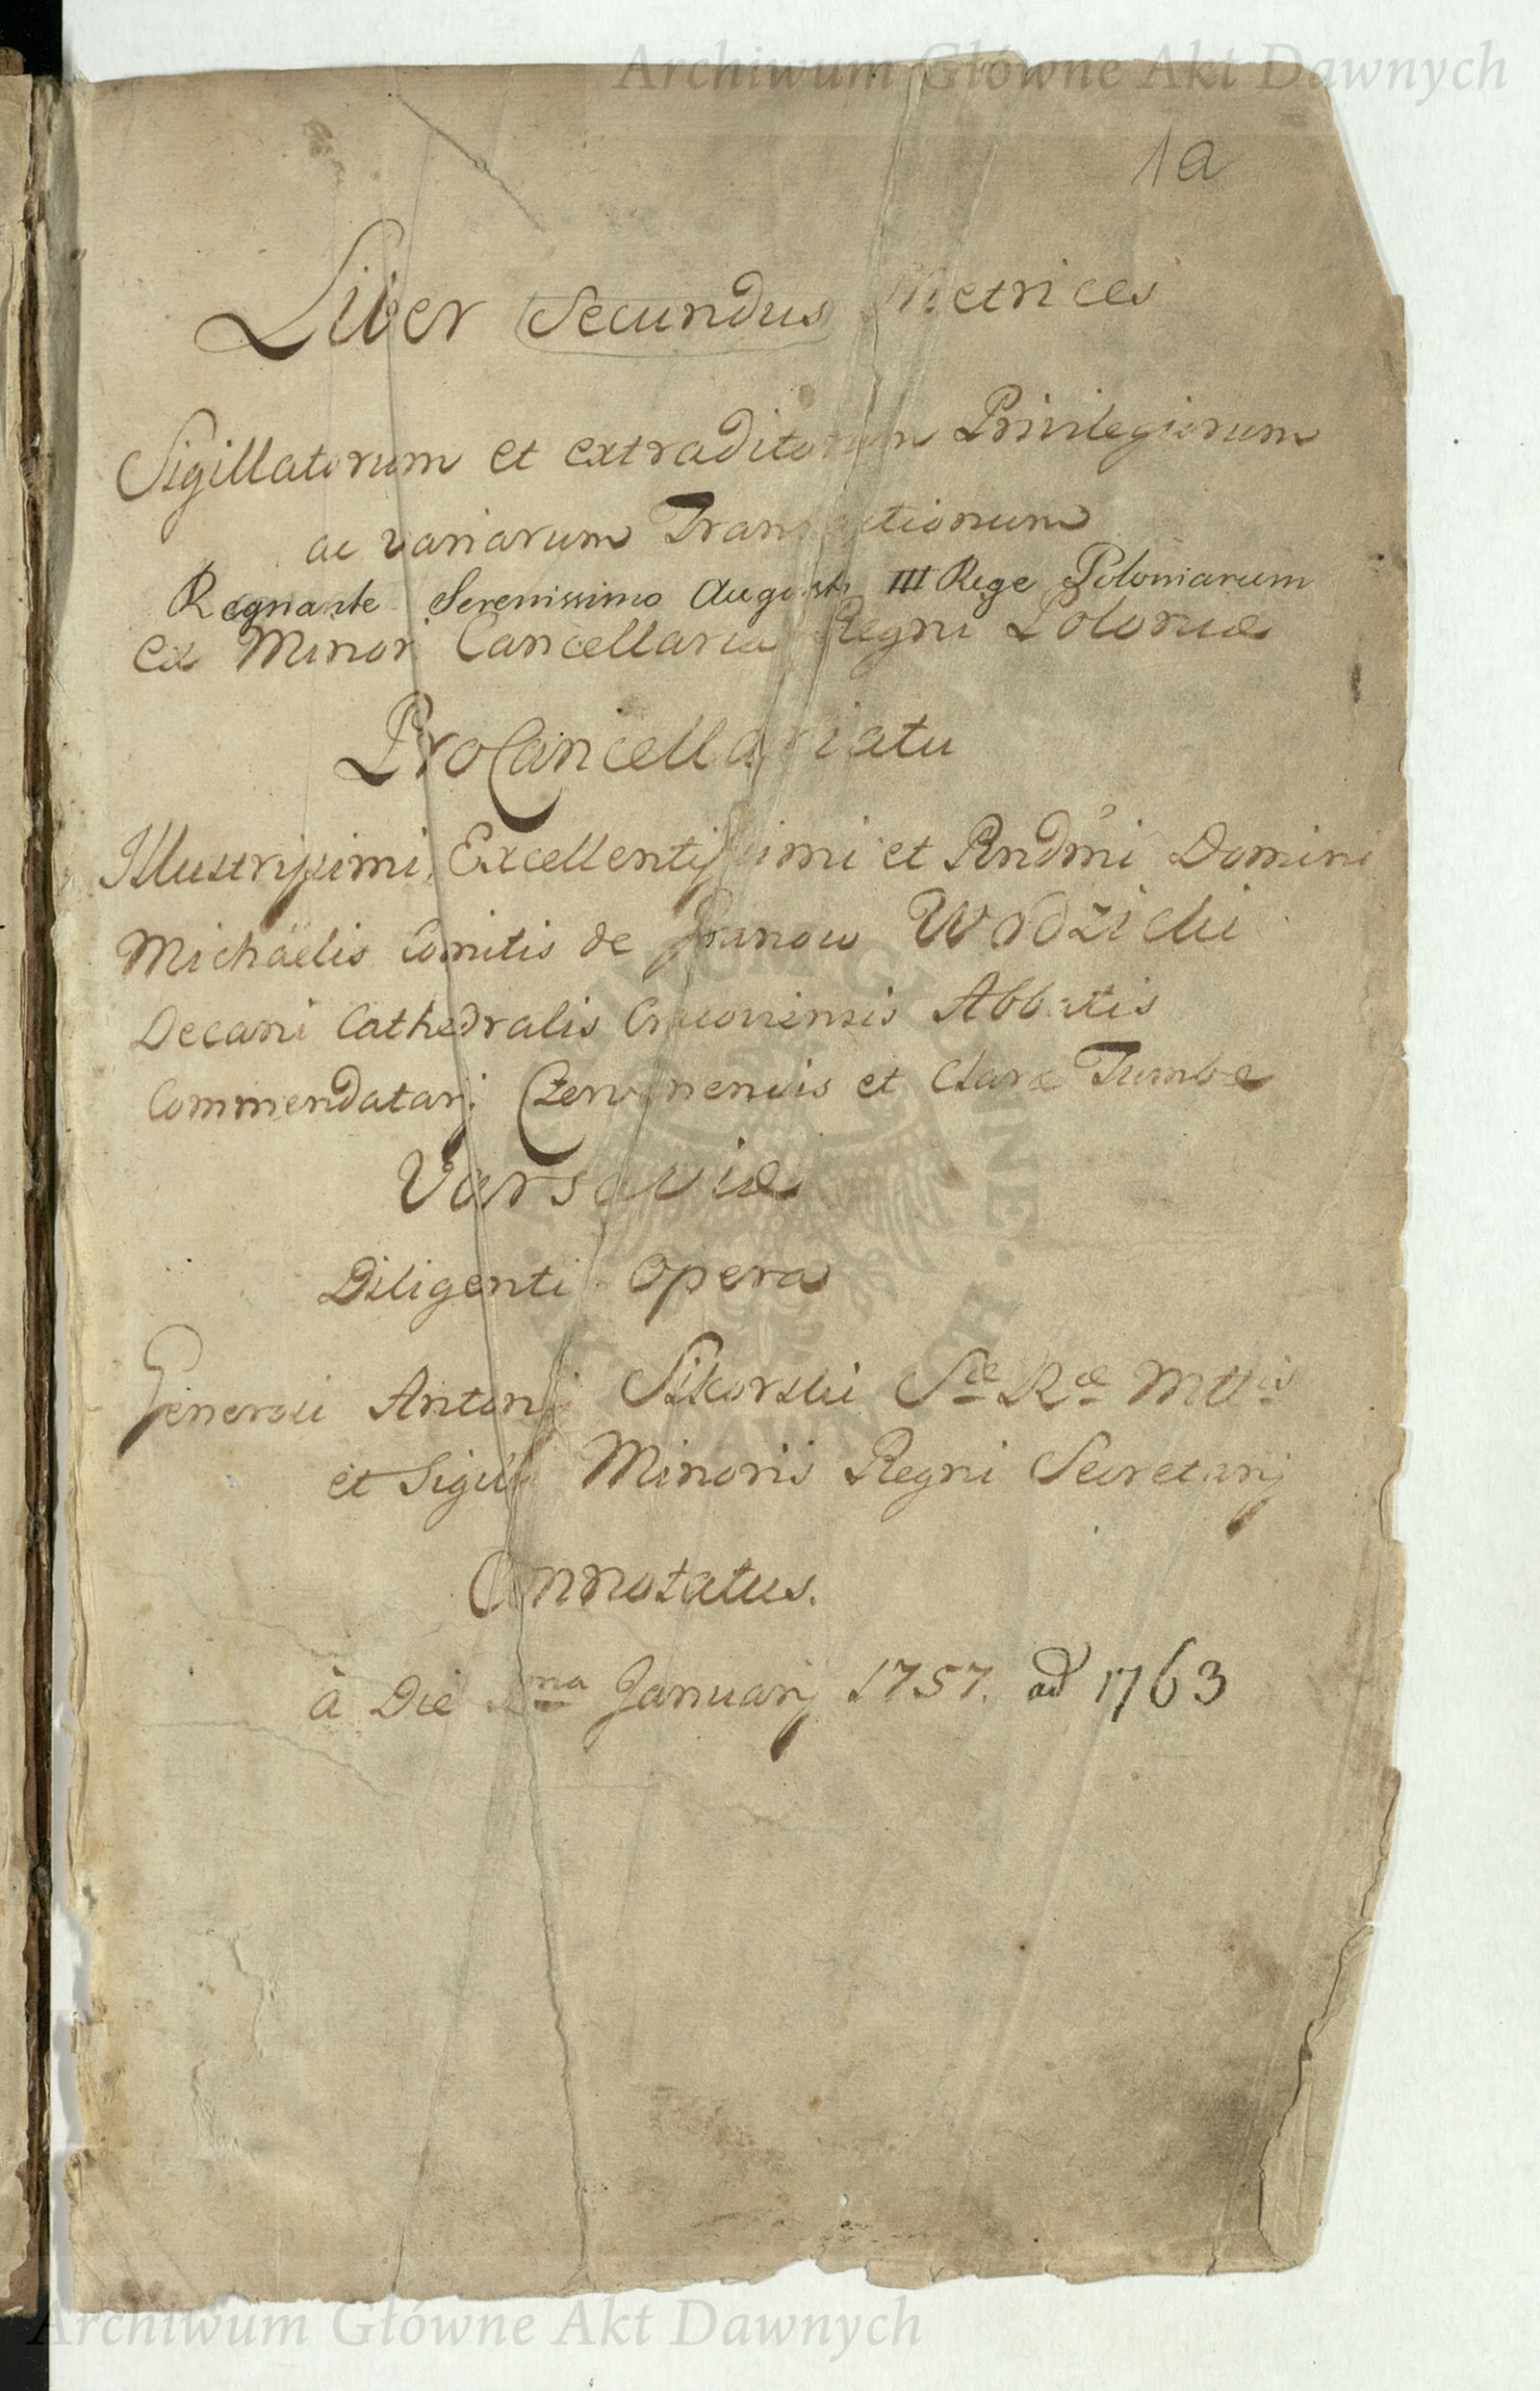 Archiwum Główne Akt Dawnych
1a
Liber Secundus Metrices
Sigillatorum et extraditorum Privilegiorum
ac variarum Transactionum
Regnante Serenissimo Augusto III Rege Poloniarum
ex Minori Cancellaria Regni Poloniæ
ProCancellariatu
Illustrissimi, Excellentissimi et Rndmi Domini
Michaelis Comitis de Granow Wodzicki
Decani Cathedralis Cracoviensis Abbatis
Commendatarij Czervinensis et Claræ Tumbæ
Varsaviæ
Diligenti Opera
Generosi Antonij Sikorski Sæ Ræ Mttis
et Sigilli Minoris Regni Secretarij
Connotatus.
à Die ma Januarij 1757. ad 1763
Archiwum Główne Akt Dawnych